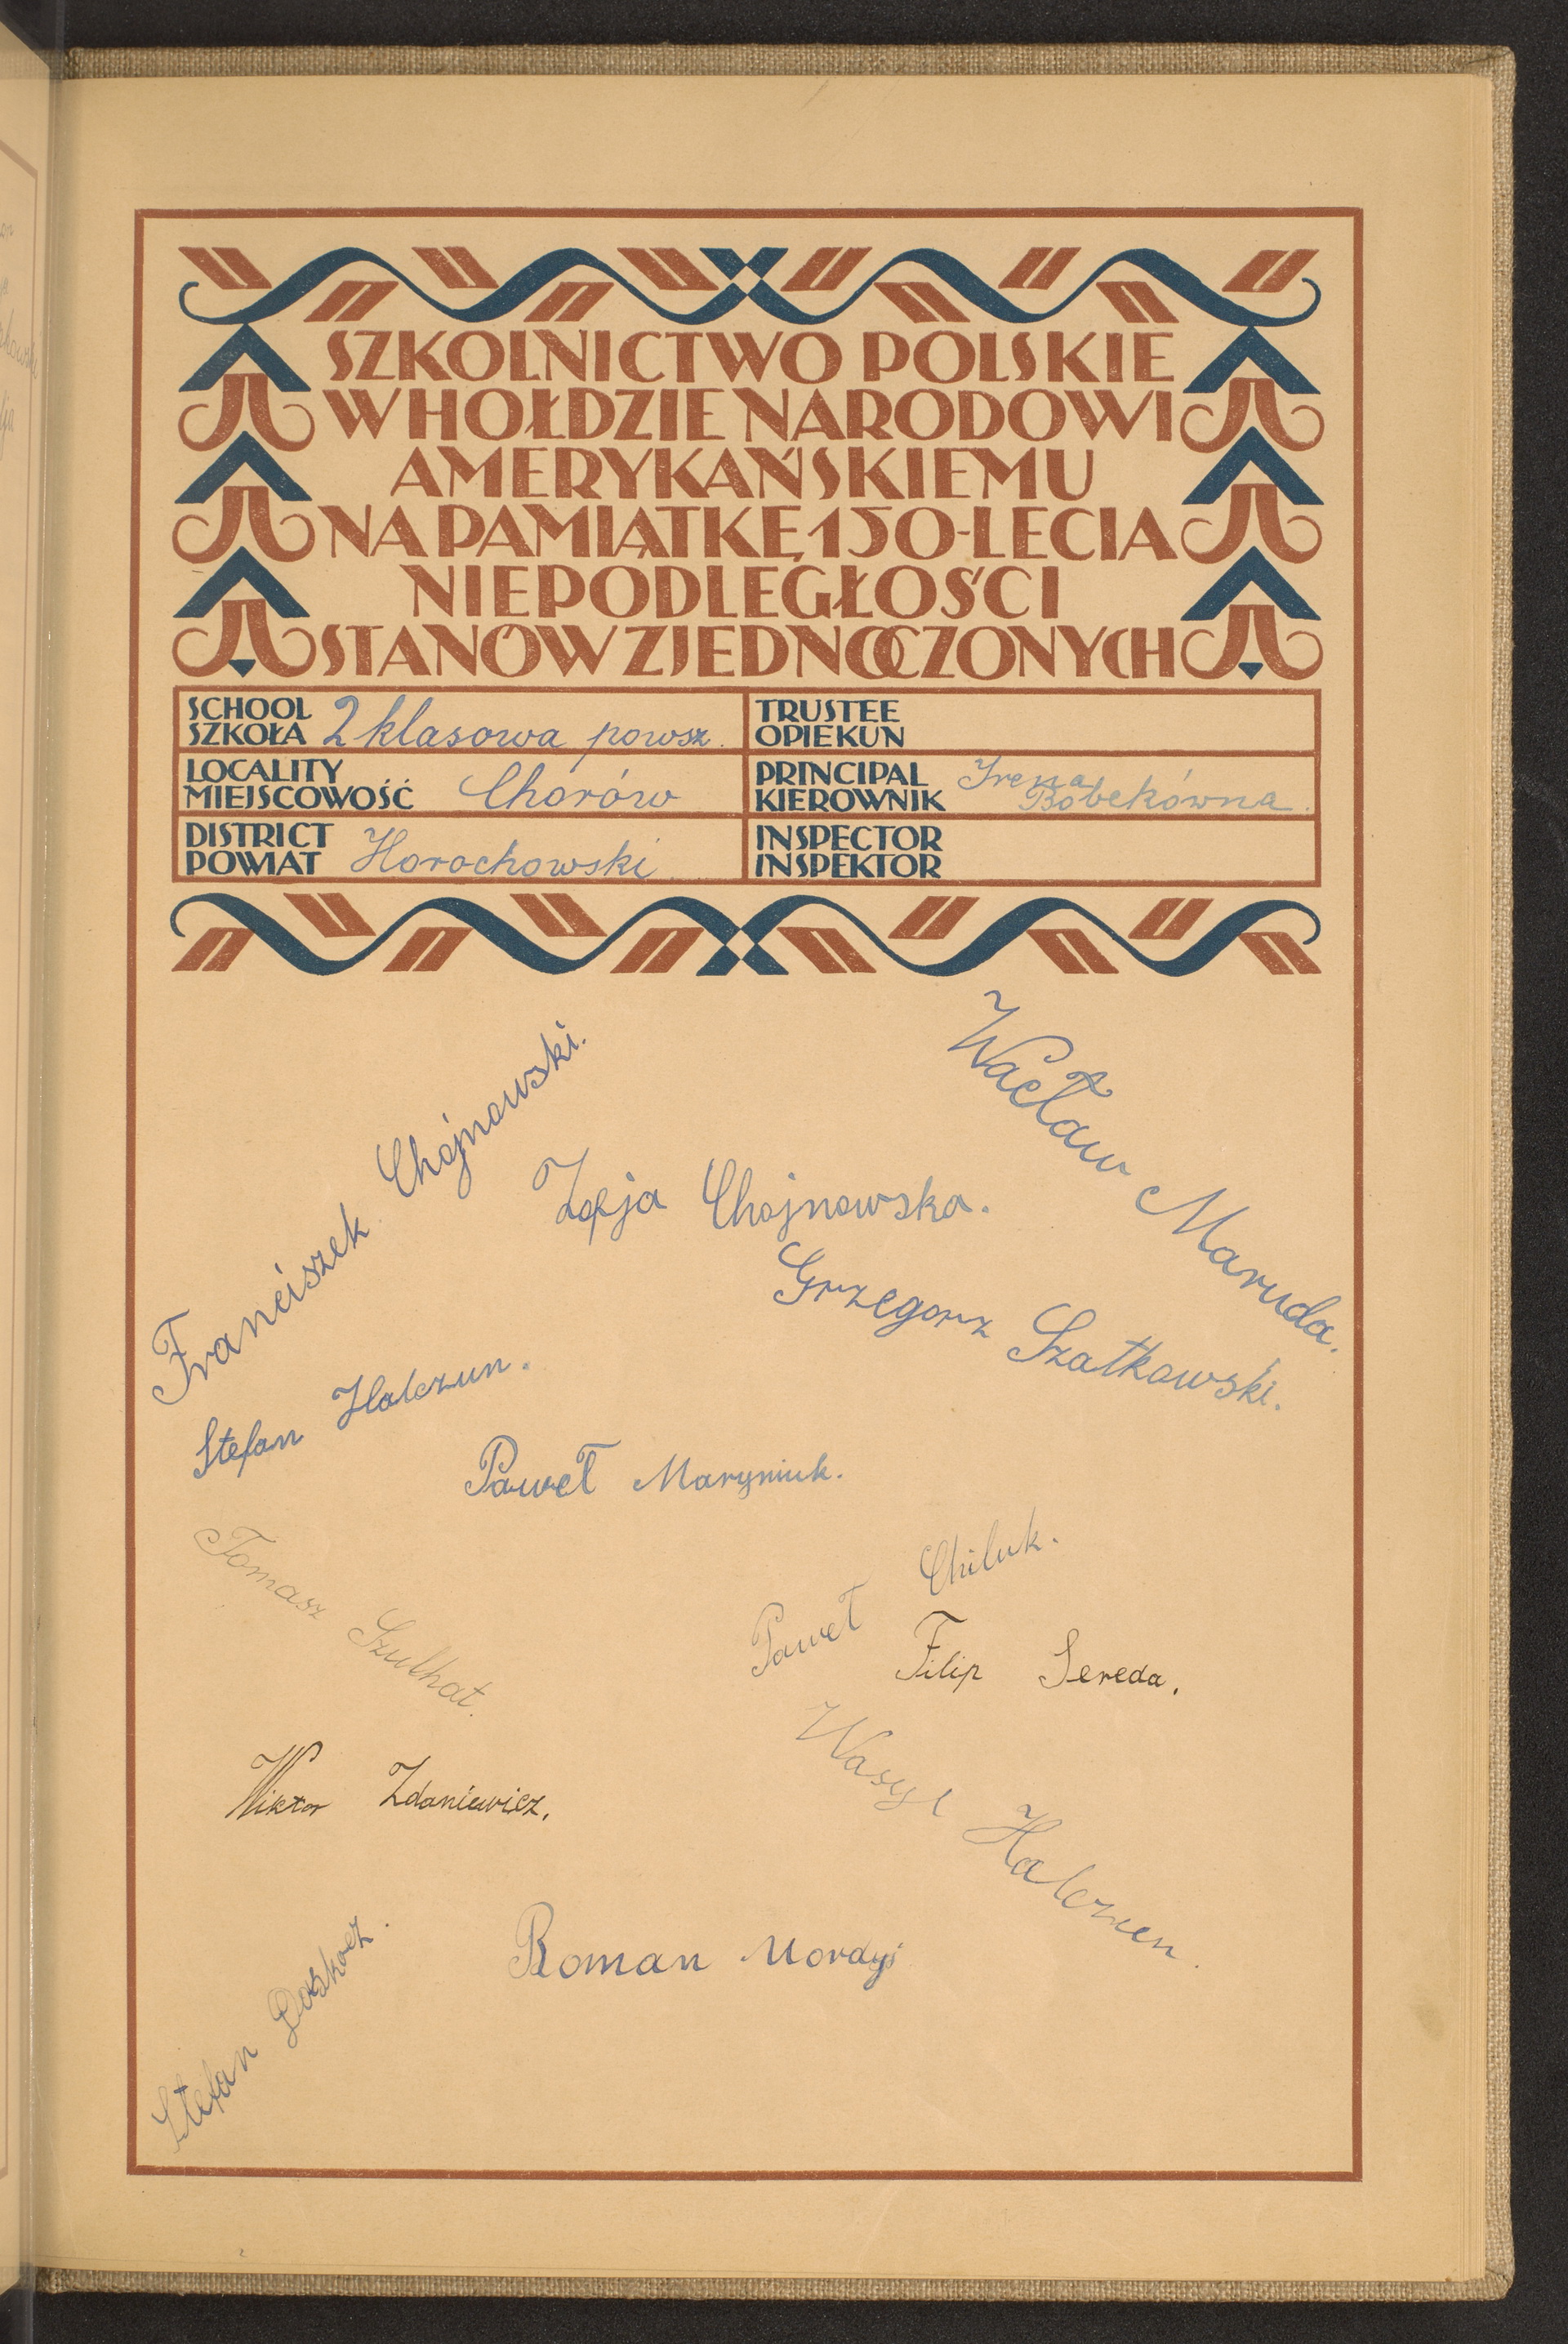 SZKOLNICTWO POLSKIE
W HOŁDZIE NARODOWI
AMERYKAŃSKIEMU
NA PAMIĄTKĘ 150-LECIA
NIEPODLEGŁOŚCI
STANÓW ZJEDNOCZONYCH
SCHOOL
SZKOŁA 2 klasowa powsz.
TRUSTEE
OPIEKUN
LOCALITY
MIEJSCOWOŚĆ Chorów
PRINCIPAL
KIEROWNIK Irena
Bobekówna.
DISTRICT
POWIAT Horochowski
INSPECTOR
INSPEKTOR
Franciszek Chojnowski.
Wacław Maruda.
Zofja Chojnowska.
Grzegorz Szatkowski.
Stefan Halczun.
Paweł Maryniuk.
Tomasz Szulhat.
Paweł Chiluk.
Filip Sereda.
Wiktor Zdaniewicz.
Wasyl
Roman
Stefan